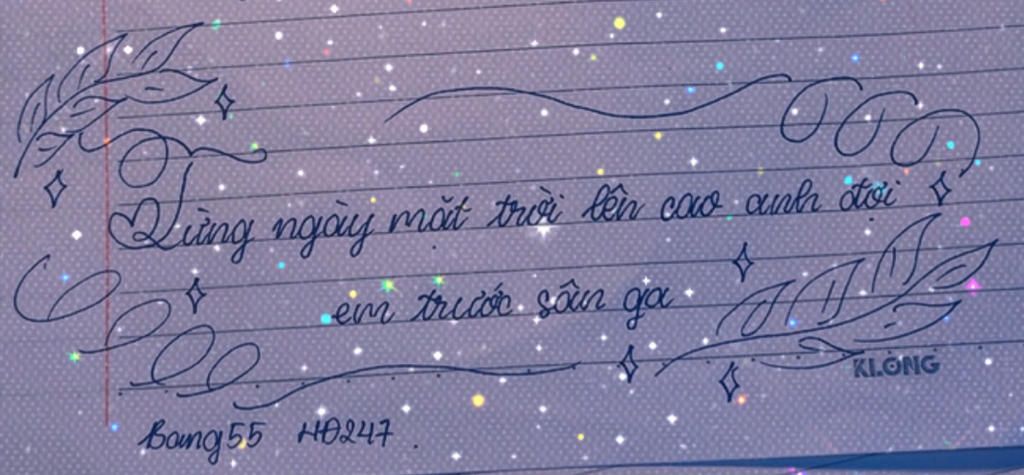 Từng ngày mặt trời lên cao anh đợi
em trước sân ga
KLONG
Bang55 HĐ247.